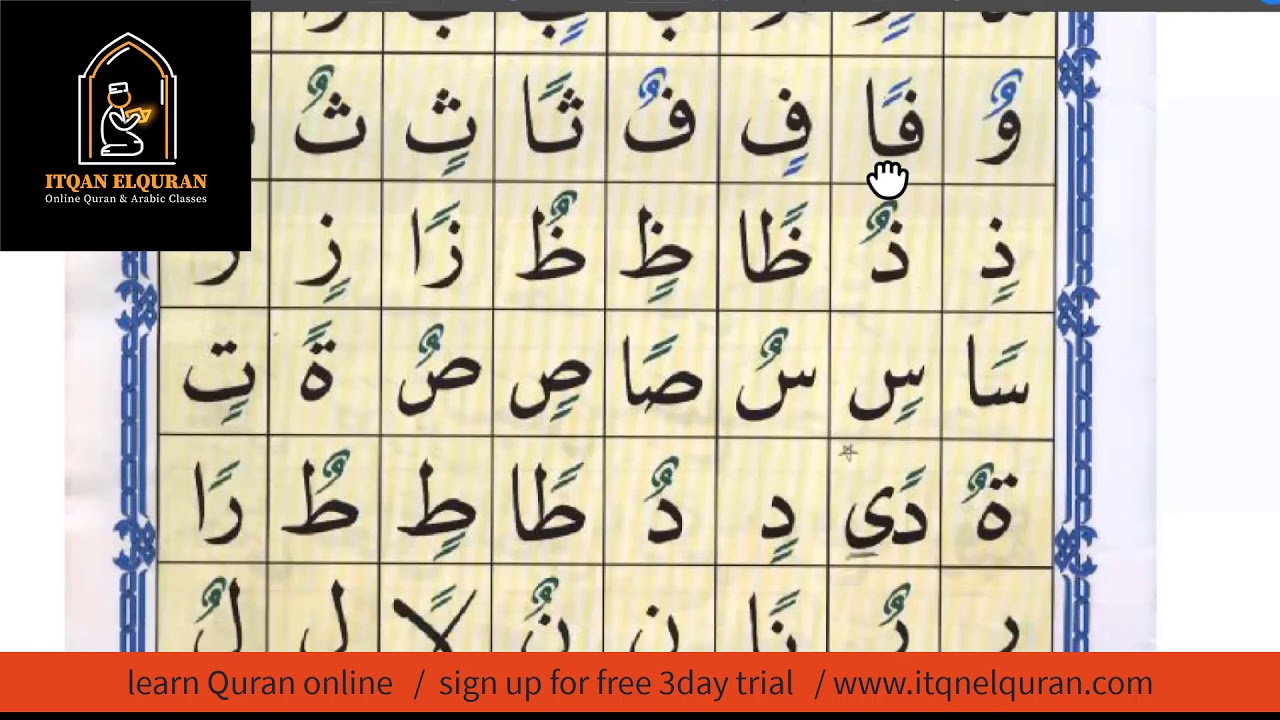 وٌ فًا فٍ فٌ ثًا ثٍ ثٌ
ذٍ ذٌ ظًا ظٍ ظٌ زًا زٍ
سًا سٍ سٌ صًا صٍ صٌ ةً تٍ
ةٌ دًى دٍ دٌ طًا طٍ طٌ رًا
نًا نٌ لًا لٌ
ITQAN ELQURAN
Online Quran & Arabic Classes
learn Quran online / sign up for free 3day trial / www.itqnelquran.com